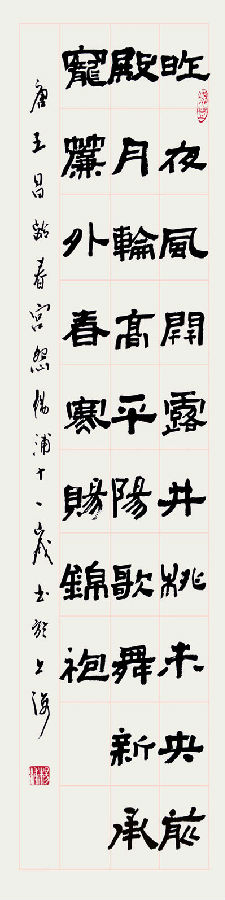 昨夜風開露井桃未央前
殿月輪高平陽歌舞新承
寵簾外春寒賜錦袍
唐王昌齡春宮怨楊浦十一歲書於上海